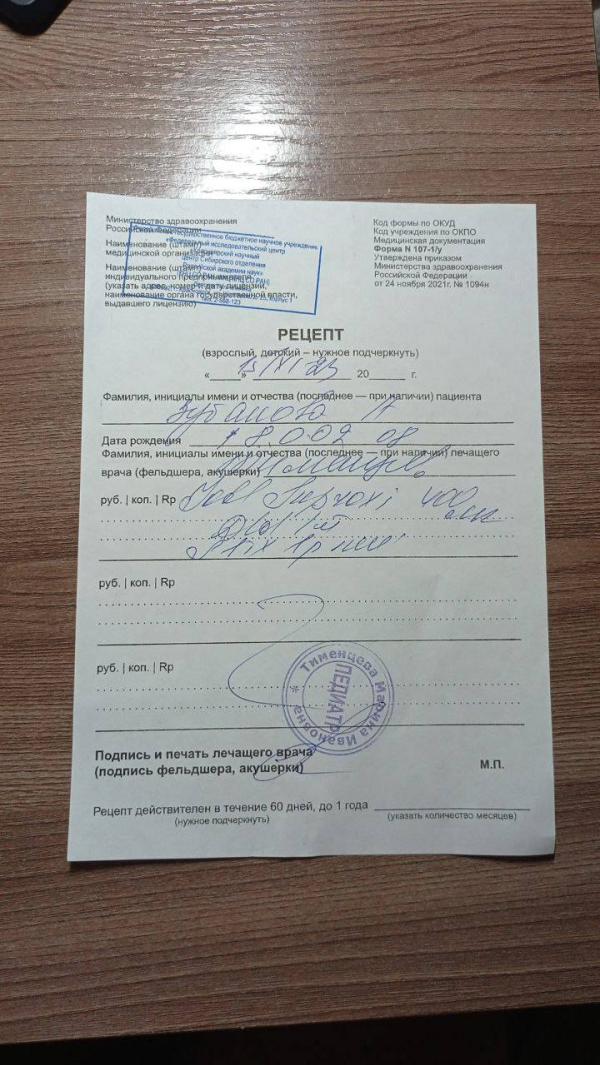 Министерство здравоохранения
Российской Федерации
Наименование (штамп)
медицинской организации
Наименование (штамп)
индивидуального предпринимателя
(указать адрес, номер и дату лицензии,
наименование органа государственной власти,
выдавшего лицензию)
государственное бюджетное научное учреждение
«Федеральный исследовательский центр
научный
центр Сибирского отделения
Российской академии наук»
Код формы по ОКУД
Код учреждения по ОКПО
Медицинская документация
Форма N 107-1/у
Утверждена приказом
Министерства здравоохранения
Российской Федерации
от 24 ноября 2021г. № 1094н
РЕЦЕПТ
(взрослый, детский – нужное подчеркнуть)
«15» XI 23 20 г.
Фамилия, инициалы имени и отчества (последнее — при наличии) пациента
Дата рождения
Фамилия, инициалы имени и отчества (последнее — при наличии) лечащего
врача (фельдшера, акушерки)
руб. | коп. | Rp
400
руб. | коп. | Rp
руб. | коп. | Rp
Тименцева Марина Ивановна
ПЕДИАТР
Подпись и печать лечащего врача
(подпись фельдшера, акушерки)
М.П.
Рецепт действителен в течение 60 дней, до 1 года
(нужное подчеркнуть) (указать количество месяцев)